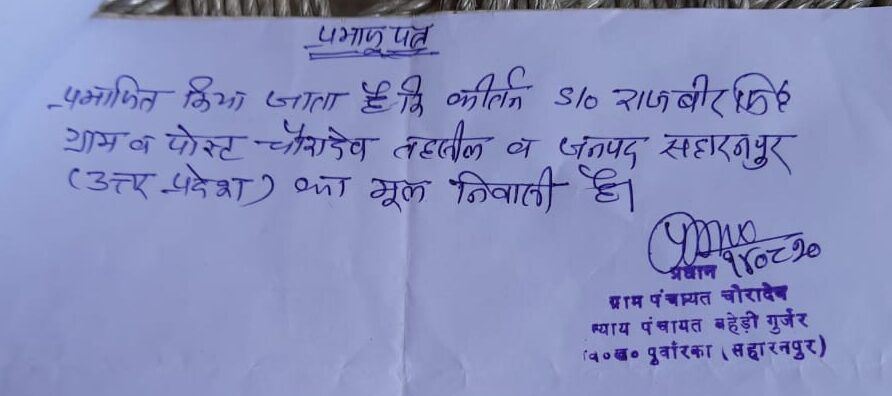 प्रमाण पत्र
प्रमाणित किया जाता है कि कीर्तन S/o राजबीर सिंह
ग्राम व पोस्ट चौरादेव तहसील व जनपद सहारनपुर
(उत्तर प्रदेश) का मूल निवासी है।
प्रधान
ग्राम पंचायत चौरादेव
न्याय पंचायत बहेड़ी गुर्जर
वि०ख० पुवांरका (सहारनपुर)